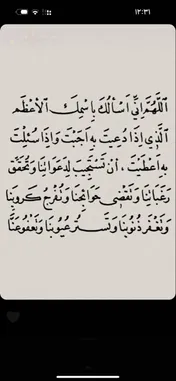 ١٢:٣١
اَللّٰهُمَّ اِنِّي اَسْأَلُكَ بِاسْمِكَ الْاَعْظَمِ
الَّذِي اِذَا دُعِيتَ بِهِ اَجَبْتَ وَاِذَا سُئِلْتَ
بِهِ اَعْطَيْتَ ، اَنْ تَسْتَجِيبَ لِدَعَوَاتِنَا وَتُحَقِّقَ
رَغَبَاتِنَا وَتَقْضِي حَوَائِجَنَا وَتُفَرِّجَ كُرُوبَنَا
وَتَغْفِرَ ذُنُوبَنَا وَتَسْتُرَ عُيُوبَنَا وَتَعْفُوَ عَنَّا